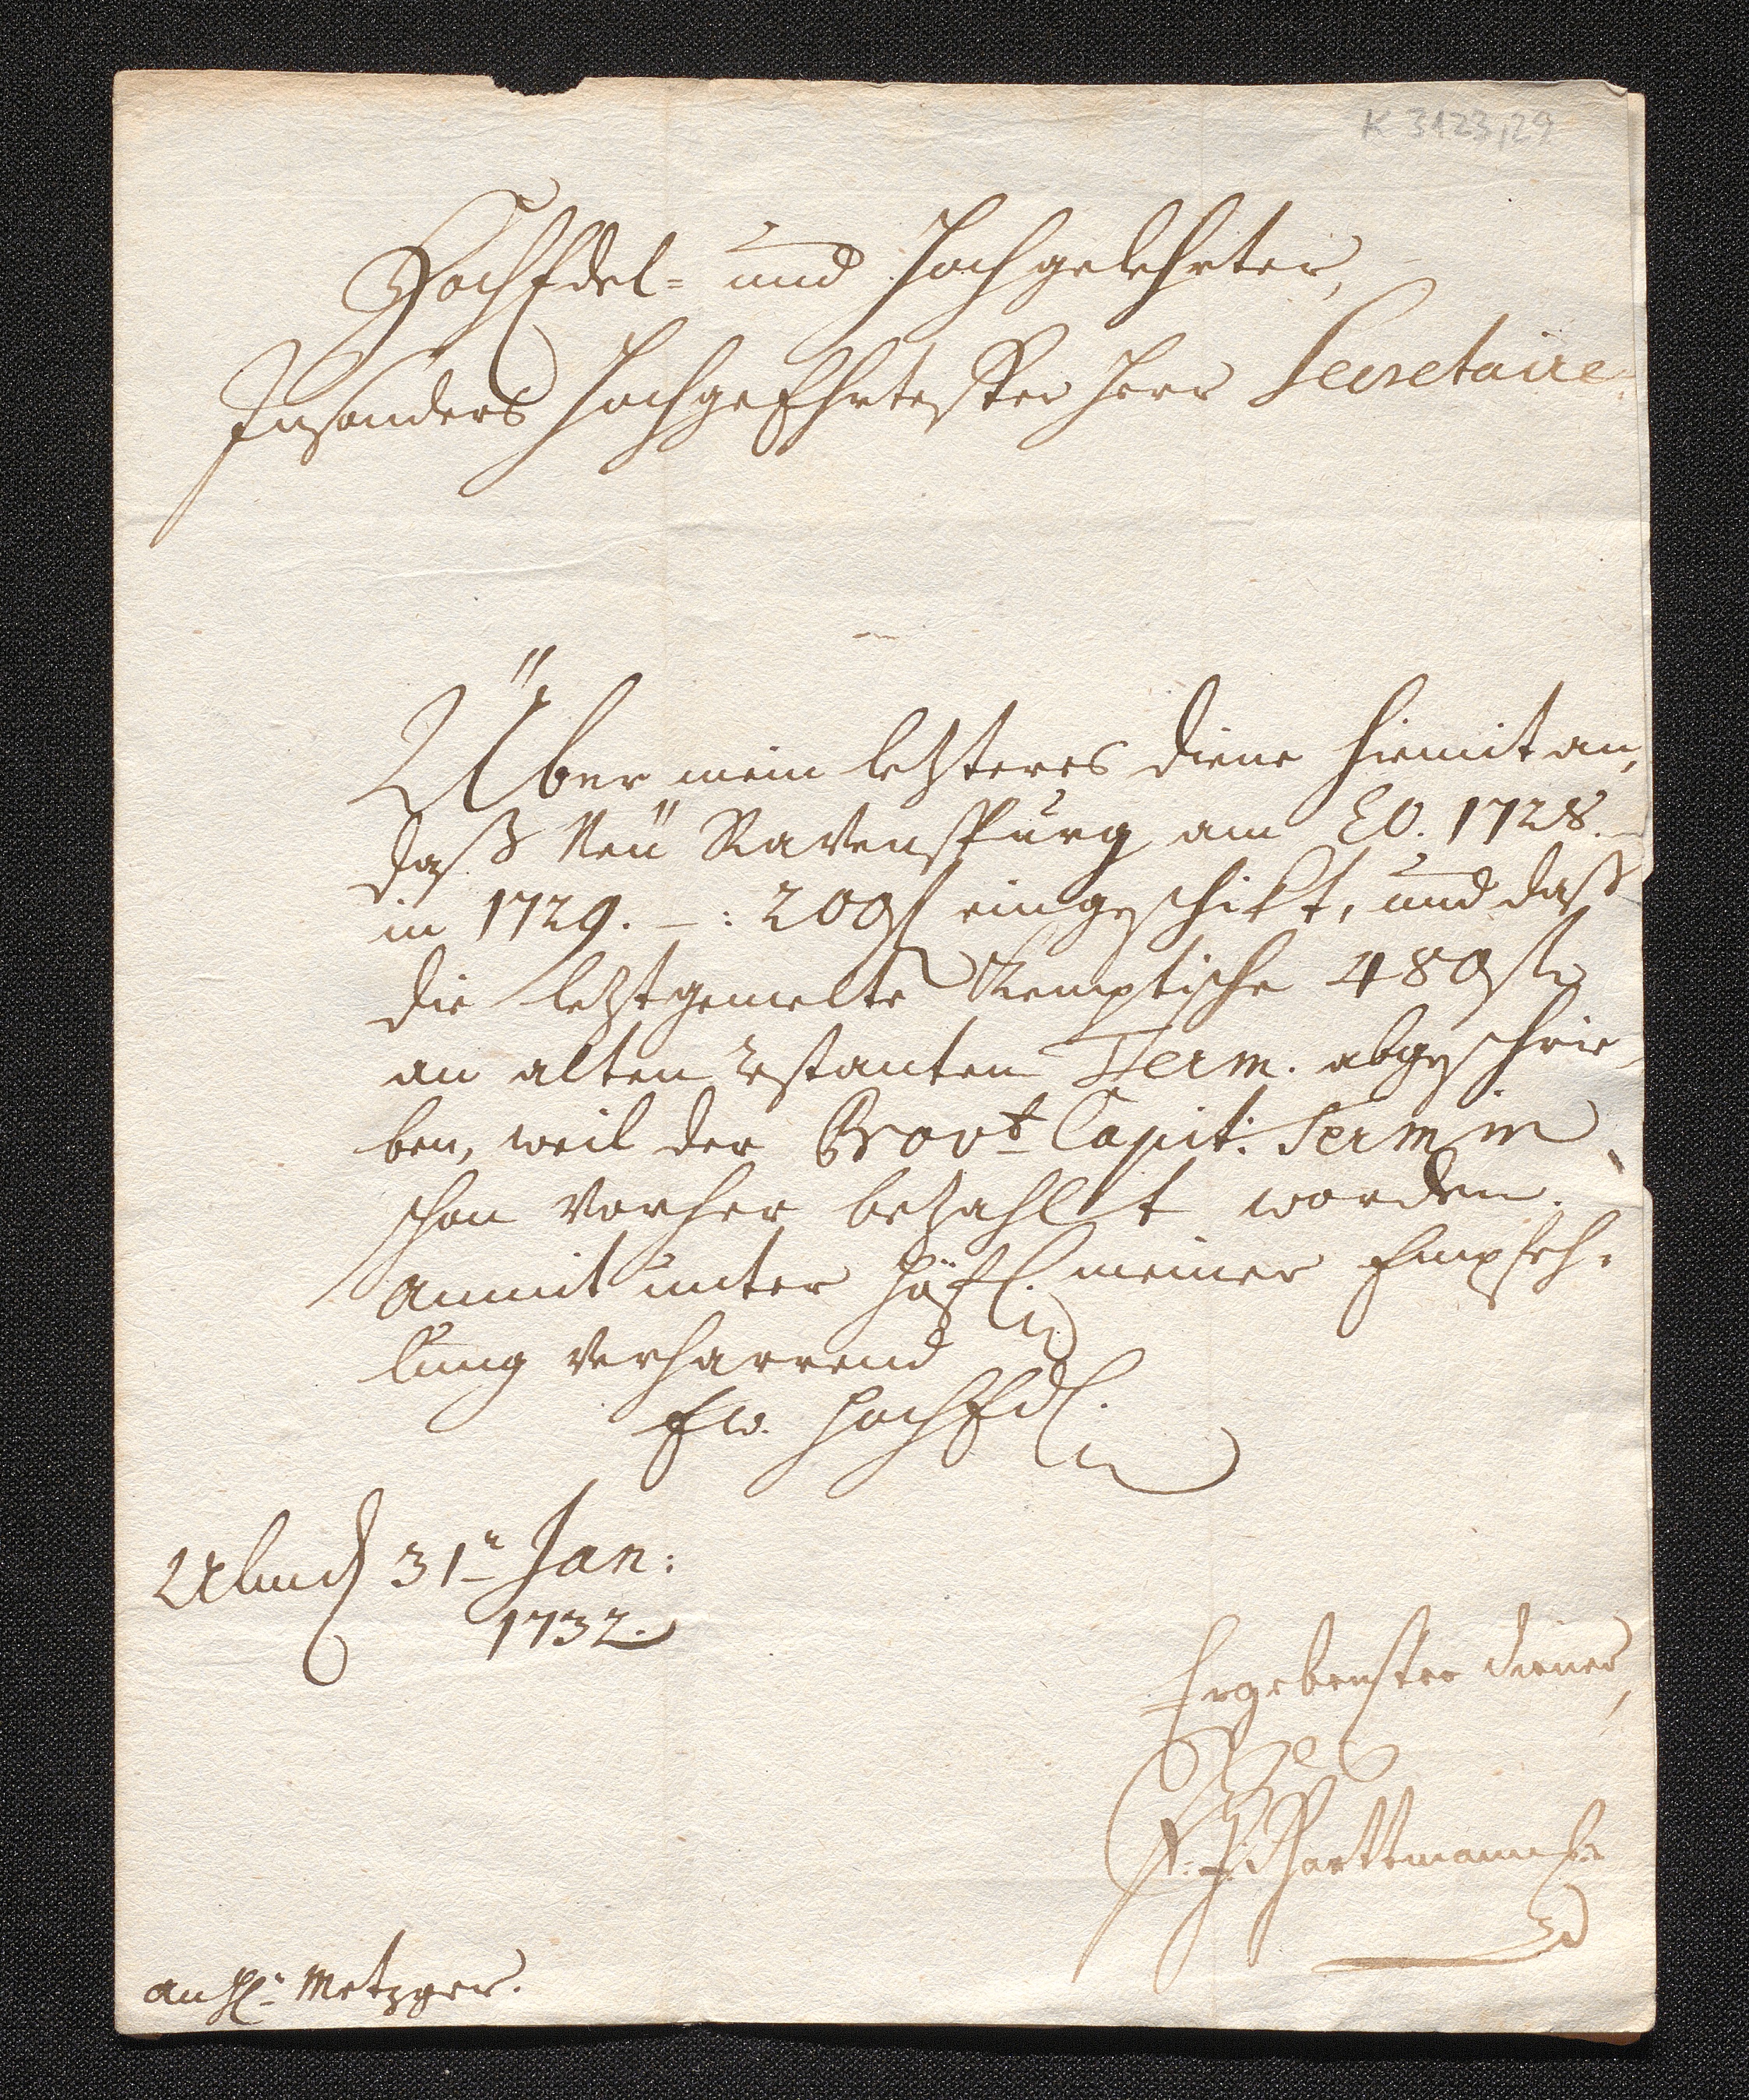 K 3123,29
HochEdel- und Hochgelehrter,
Insonders HochgeEhrtester Herr Secretaire.
Über mein letzteres diene hiemit an,
daß Neü Ravenspurg am 1728.
in 1729. -: 200 f eingeschikt, und daß
die letztgemelte Kemptische 480 f
an alten restanten Term. abgeschrie-
ben, weil der Capit: Termin
schon vorher bezahlt worden.
Anmit unter höfl. meiner Empfeh-
lung verharrend
Ew. HochEdl.
Ulm d 31n Jan:
1732.
Ergebenster Diener,
Harttmann
an H: Metzger.